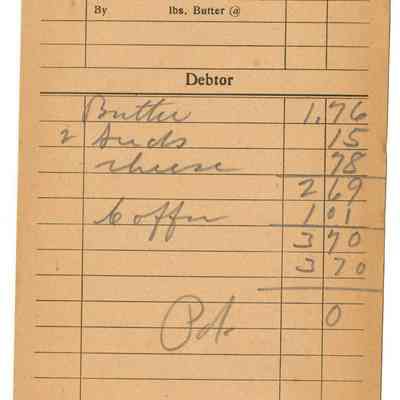 By lbs. Butter @
Debtor
Butter 1.76
2 Suds 15
cheese 78
2 69
Coffee 1 01
3 70
3 70
Pd. 0